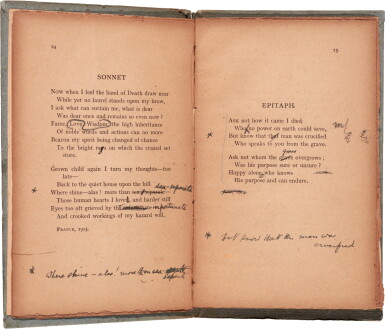 24
SONNET
Now when I feel the hand of Death draw near
While yet no beard stands upon my brow,
I ask what can sustain me, what is dear
Was dear once and remains so even now?
Fame, Love, Wisdom, the high inheritance
Of noble words and actions can no more
Beacon my spirit being changed of chance
To the bright on which the crazed set
store.
Grown child again I turn my thoughts—too
late—
Back to the quiet house upon the hill
Where shine—alas! more than
Those human hearts I loved, and harder still
Eyes too oft grieved by the
And crooked workings of my hazard will.
France, 1915.
* Where shine — alas! more than
25
EPITAPH
Ask not how it came I died;
Who no power on earth could save,
But know that man was crucified
Who speaks to you from the grave.
Ask not whom the overgrows;
Was his purpose sure or unsure?
Happy alone who knows
His purpose and can endure.
* but know that the man was
crucified